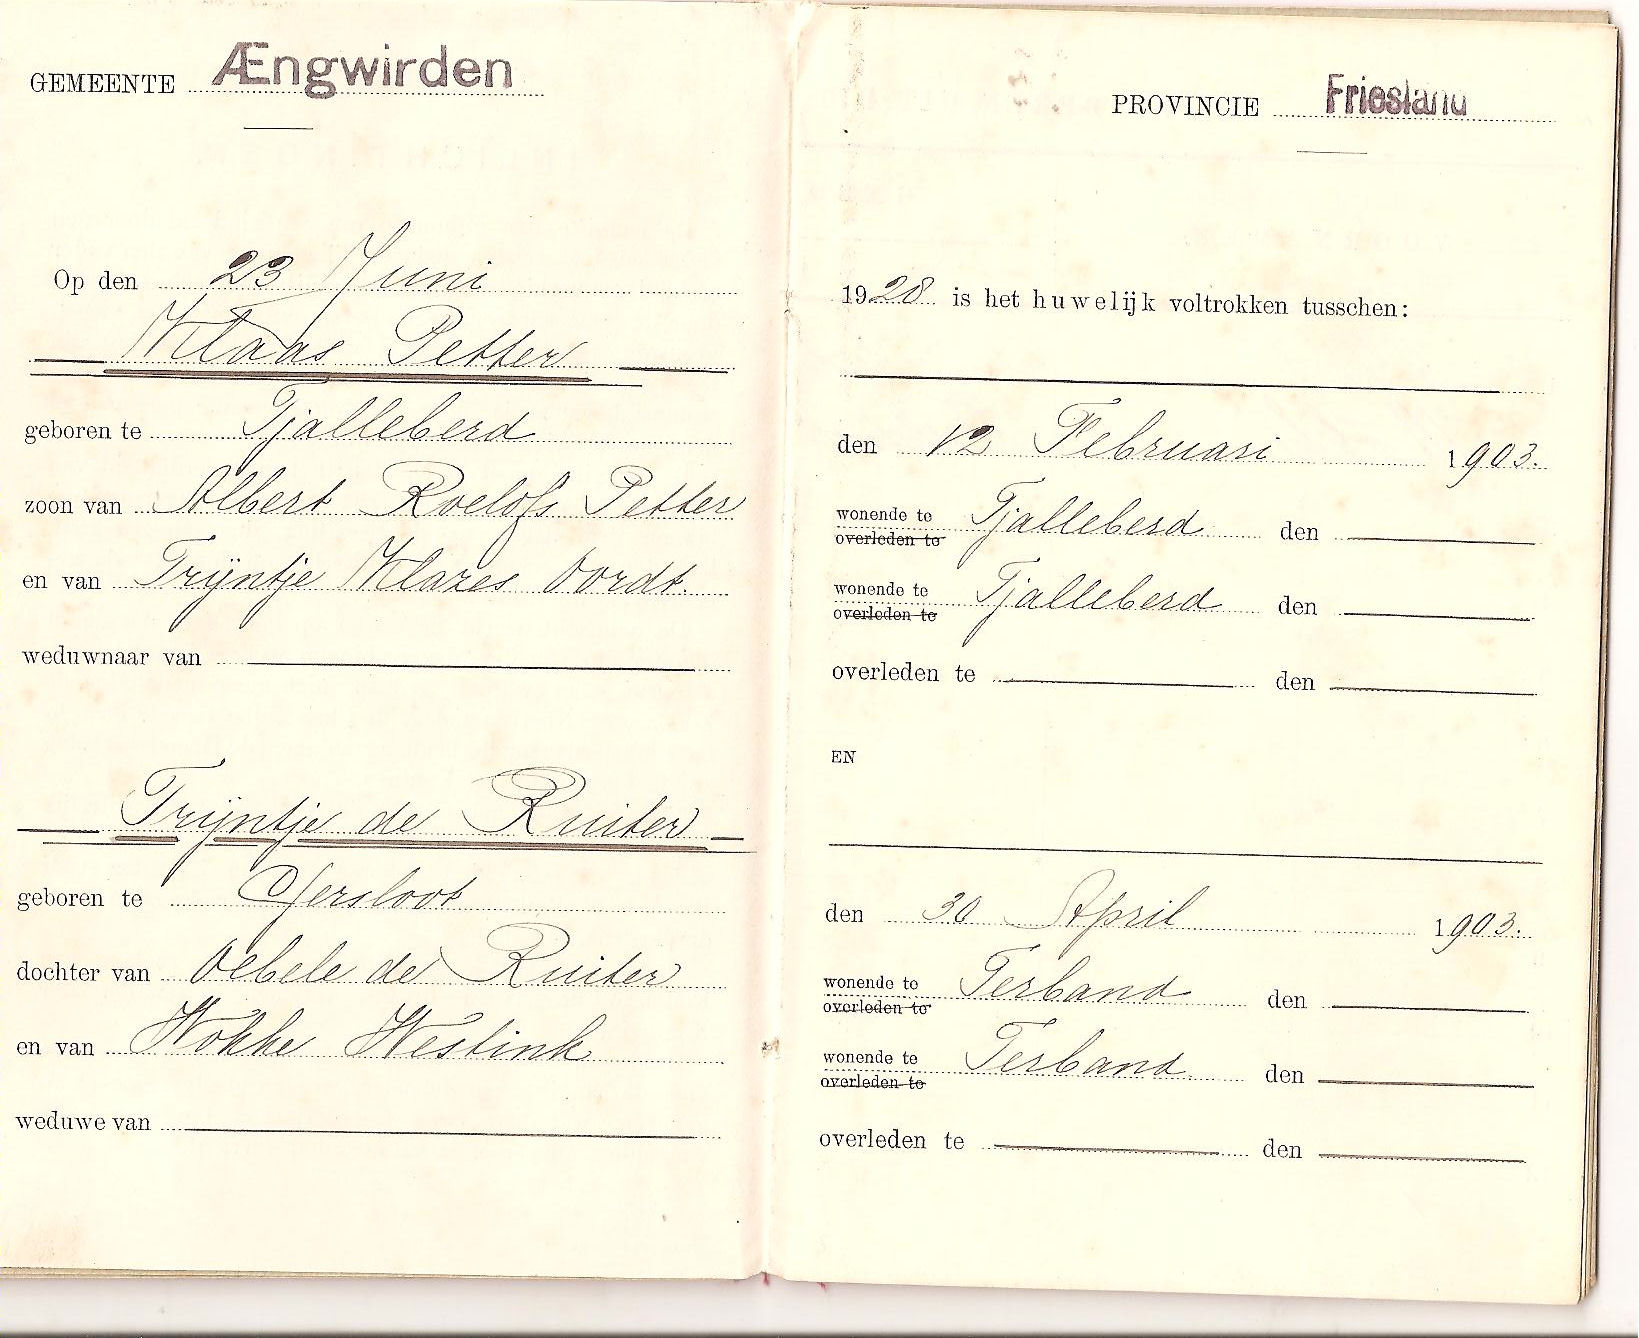 GEMEENTE Ængwirden
Op den 23 Juni
Klaas Petter
geboren te Tjalleberd
zoon van Albert Roelofs Petter
en van Trijntje Klazes Oordt.
weduwnaar van
Trijntje de Ruiter
geboren te Gersloot
dochter van Oebele de Ruiter
en van Wokke Westink
weduwe van
PROVINCIE Friesland
1928 is het huwelijk voltrokken tusschen:
den 12 Februari 1903.
wonende te
overleden te Tjalleberd den
wonende te
overleden te Tjalleberd den
overleden te den
EN
den 30 April 1903.
wonende te
overleden te Terband den
wonende te
overleden te Terband den
overleden te den